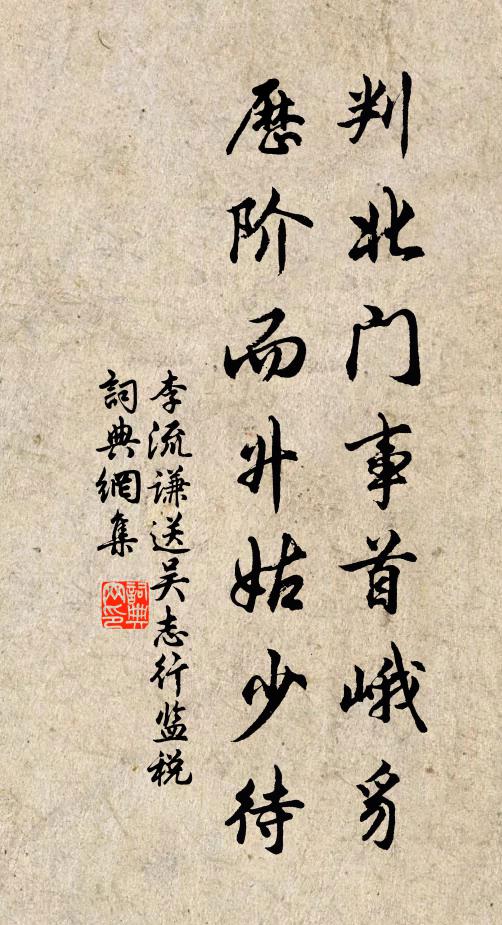 判北门事首峨豸
历阶而升姑少待
李流谦送吴志行监税
詞典網集
詞典网印